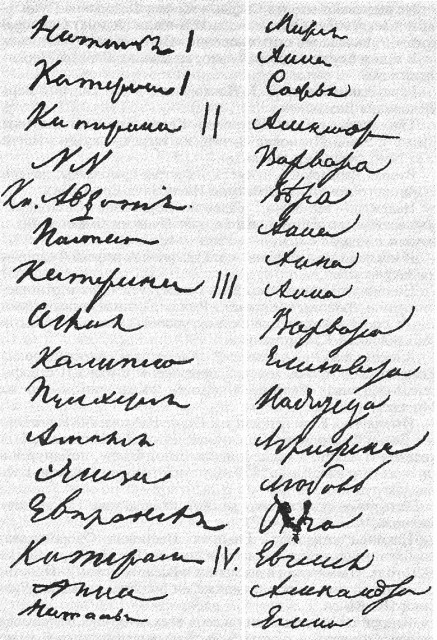 Наталья I
Катерина I
Катерина II
NN
Кн. Авдотия
Настасья
Катерина III
Аглая
Калипсо
Пулхерия
Амалия
Элиза
Евпраксея
Катерина IV.
Анна
Наталья
Мария
Анна
Софья
Александра
Варвара
Вѣра
Анна
Анна
Анна
Варвара
Елизавета
Надежда
Аграфена
Любовь
Ольга
Евгения
Александра
Елена